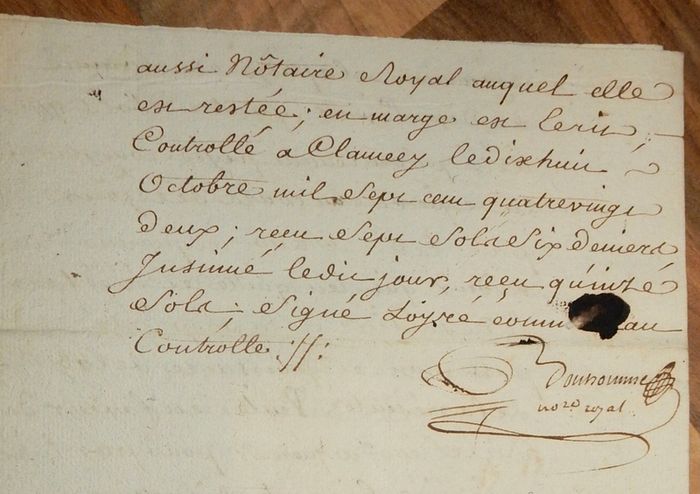 aussi Nôtaire Royal auquel elle
est restée; en marge est Ecrit,
Controllé a Clamecy le dix huit
Octobre mil sept cent quatrevingt
deux; recu sept sols six deniers
Insinué ledit jour, recu quinze
sols. signé Loyré comm au
Contrôlle.//:
no.re royal